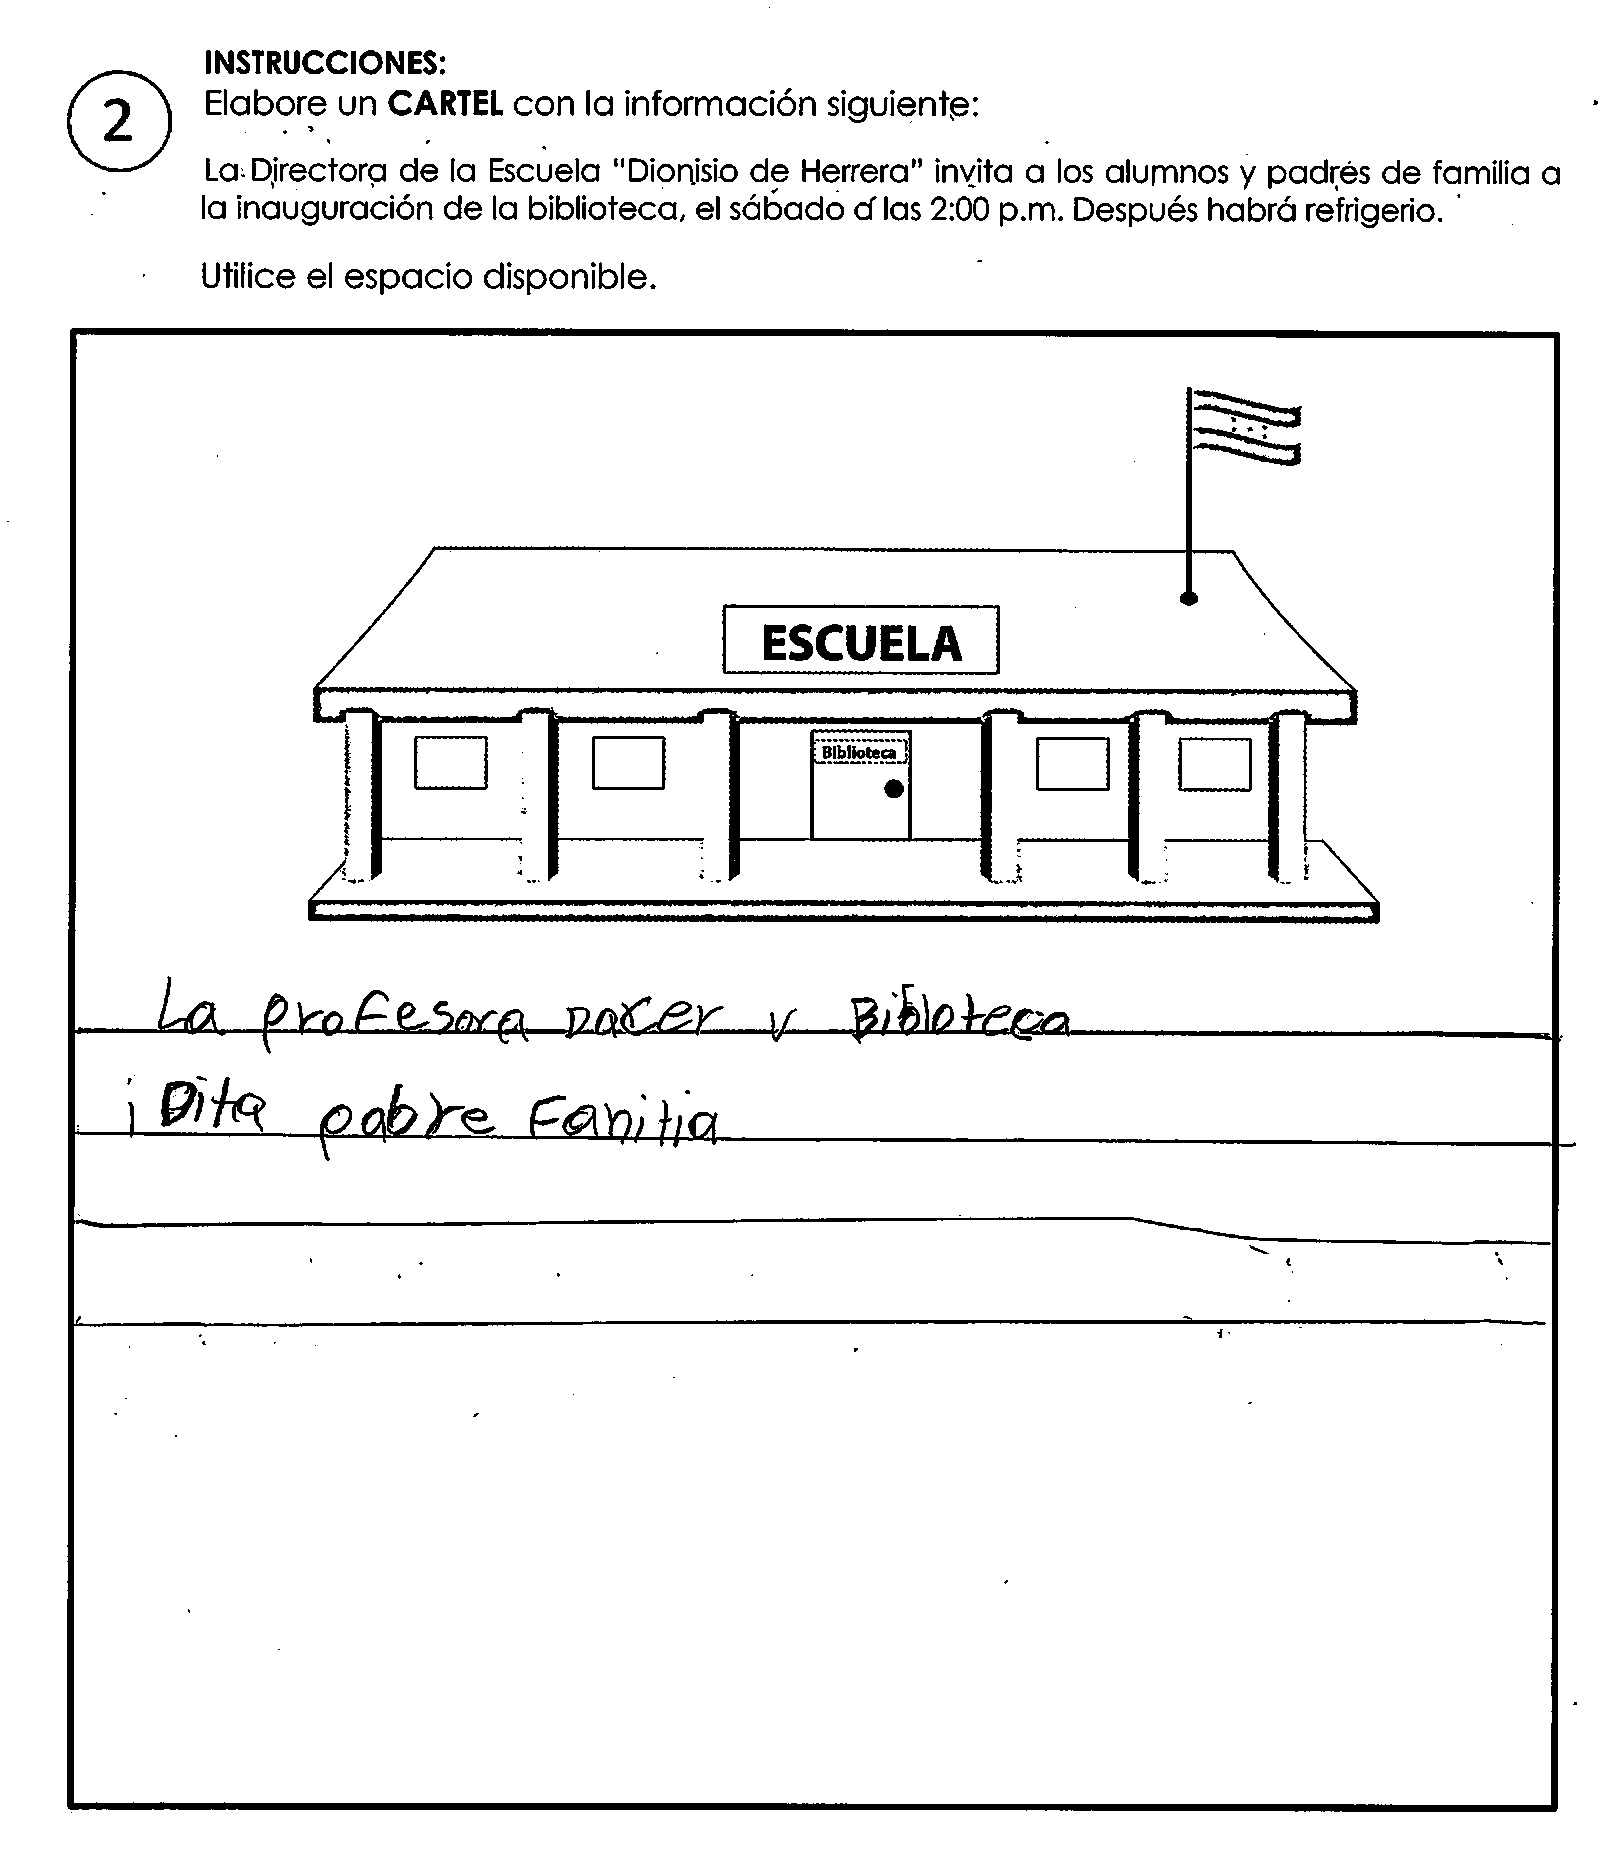 INSTRUCCIONES:
2
Elabore un CARTEL con la información siguiente:
La Directora de la Escuela "Dionisio de Herrera" invita a los alumnos y padres de familia a
la inauguración de la biblioteca, el sábado a las 2:00 p.m. Después habrá refrigerio.
Utilice el espacio disponible.
ESCUELA
Biblioteca
La profesora Dacer y Bibloteca
i Dita pabre Fanitia